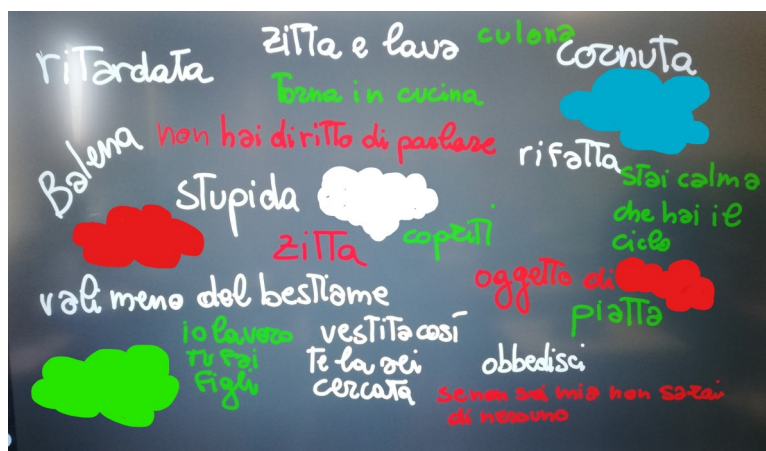 ritardata
zitta e lava
culona
cornuta
Torna in cucina
Balena
non hai diritto di parlare
rifatta
stai calma
che hai il
ciclo
stupida
zitta
copriti
oggetto di
piatta
vali meno del bestiame
io lavoro
tu fai
figli
vestita così
te la sei
cercata
obbedisci
se non sei mia non sarai
di nessuno